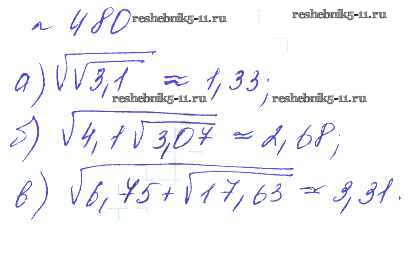 № 480
reshebnik5-11.ru
reshebnik5-11.ru
а) √√3,1 ≈ 1,33;
reshebnik5-11.ru
reshebnik5-11.ru
б) √4,1√3,07 ≈ 2,68;
в) √6,75+√17,63 ≈ 3,31.